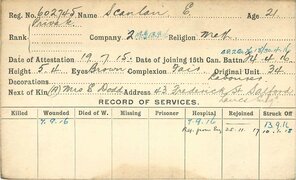 Reg. No. 602745 Name Scanlair E. Age 21
Rank Company Religion Meth
Date of Attestation 19.7.15. Date of Joining 15th Can. Battn. 14.4.16
Height 5.4 Eyes Brown Complexion Fair Original Unit 34
Decorations Labourer
Next of Kin Mrs E Dodd Address 43 Frederick St Salford
RECORD OF SERVICES.
Killed Wounded Died of W. Missing Prisoner Hospital Rejoined Struck Off
7.9.16 9.9.16 25.11.17 13.9.16